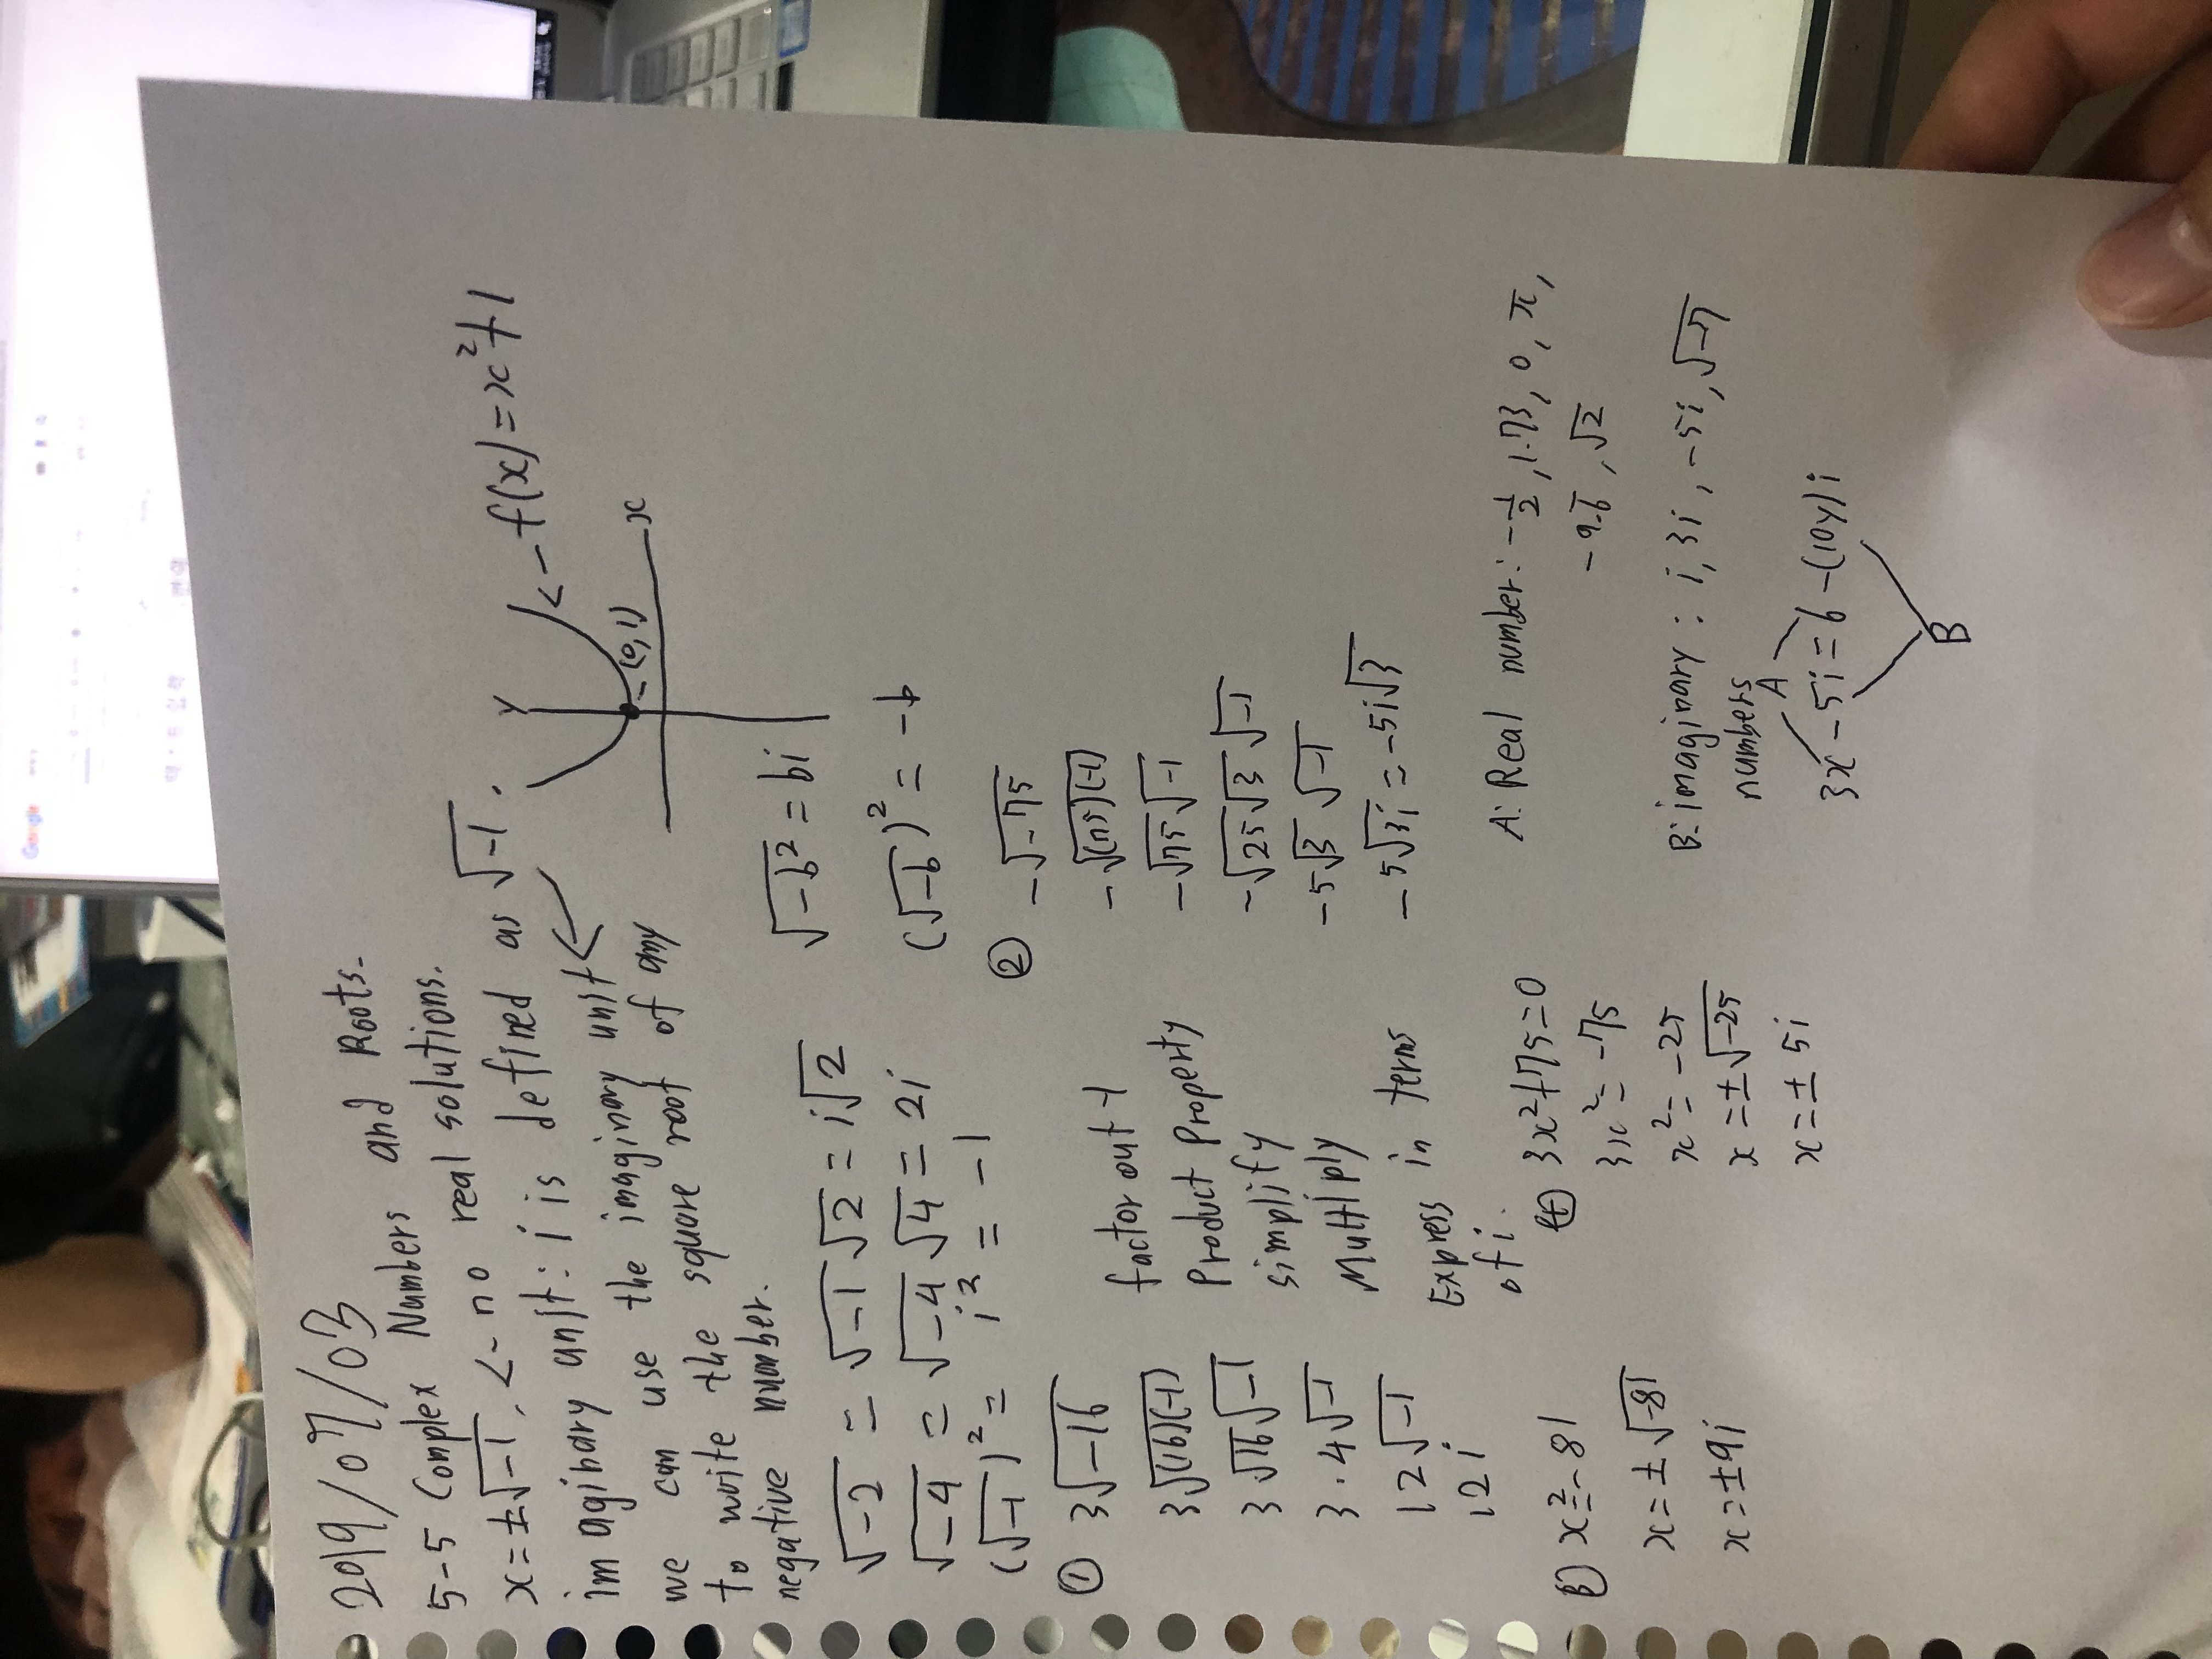 2019/07/03
5-5 Complex Numbers and Roots.
x=±√-1. <- no real solutions.
imagibary unit: i is defined as √-1.
we can use the imaginary unit
to write the square root of any
negative number.
Y
<- f(x)=x²+1
(0,1)
x
√-2 = √-1 √2 = i√2
√-4 = √-4 √4 = 2i
(√-1)² = i² = -1
√-b² = bi
(√-b)² = -b
① 3√-16
3√(16)(-1) factor out -1
3√16√-1 Product Property
3·4√-1 simplify
12√-1 Multiply
12i Express in terms
of i.
② -√-75
-√(75)(-1)
-√75√-1
-√25√3√-1
-5√3 √-1
-5√3i=-5i√3
③ x²=-81
x=±√-81
x=±9i
④ 3x²+75=0
3x²=-75
x²=-25
x=±√-25
x=±5i
A: Real number: -1/2, 1.73, 0, π,
-9.6, √2
B: imaginary : i, 3i, -5i, √-7
numbers
A
3x-5i=6-(10y)i
B
Google